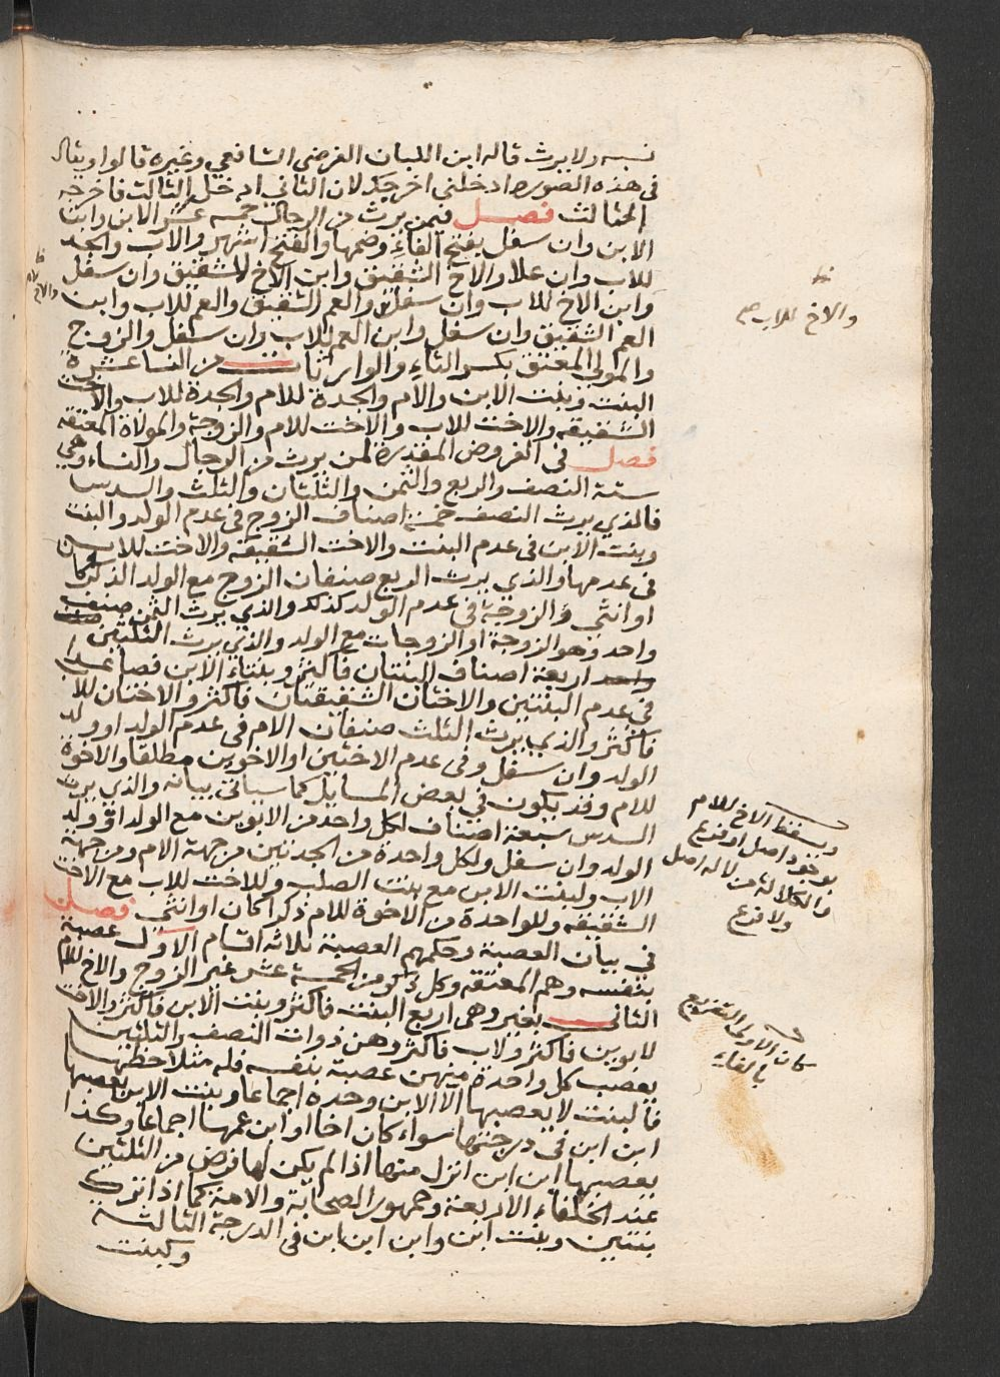 نسبه ولا يرث قاله ابن اللبان الفرضي الشافعي وغيره قالوا ويقال
في هذه الصورة ادخلني اخرجك لان الثاني ادخل الثالث فاخرجه
الثالث فصل فيمن يرث من الرجال خمسة عشر الابن وابن
الابن وان سفل بفتح الفاء وضمها والفتح اشهر والاب والجد
للاب وان علا والاخ الشقيق وابن الاخ الشقيق وان سفل
وابن الاخ للاب وان سفل والعم الشقيق والعم للاب وابن
العم الشقيق وان سفل وابن العم للاب وان سفل والزوج
والمولى المعتق بكسر التاء والوارثات من النسا عشرة
البنت وبنت الابن والام والجدة للام والجدة للاب والاخت
الشقيقه والاخت للاب والاخت للام والزوجة والمولاة المعتقه
فصل في الفروض المقدرة لمن يرث من الرجال والنساء وهي
ستة النصف والربع والثمن والثلثان والثلث والسدس
فالذي يرث النصف خمسة اصناف الزوج في عدم الولد والبنت
وبنت الابن في عدم البنت والاخت الشقيقة والاخت للاب
في عدمها والذي يرث الربع صنفان الزوج مع الولد الذكر كان
او انثي والزوجة في عدم الولد كذلك والذي يرث الثمن صنف
واحد وهو الزوجة او الزوجات مع الولد والذي يرث الثلثين
اربعة اصناف البنتان فاكثر وبنتا الابن فصاعدا
في عدم البنتين والاختان الشقيقتان فاكثر والاختان للاب
فاكثر والذي يرث الثلث صنفان الام في عدم الولد او ولد
الولد وان سفل وفي عدم الاختين او الاخوين مطلقا والاخوة
للام وقد يكون في بعض المسايل كما سياتي بيانه والذي يرث
السدس سبعة اصناف لكل واحد من الابوين مع الولد او ولد
الولد وان سفل ولكل واحدة من الجدتين من جهة الام ومن جهة
الاب ولبنت الابن مع بنت الصلب وللاخت للاب مع الاخت
الشقيقه وللواحدة من الاخوة للام ذكرا كان او انثي فصل
في بيان العصبة وحكمهم العصبة ثلاثه اقسام الاول عصبة
بنفسه وهم المعتقه وكل ذكر من الخمسة عشر غير الزوج والاخ للام
الثاني بغيره وهي اربع البنت فاكثر وبنت الابن فاكثر والاخت
لابوين فاكثر ولاب فاكثر وهن ذوات النصف والثلثين
يعصب كل واحدة منهن عصبة بنفسه فله مثلا حظها
فالبنت لا يعصبها الا الابن وحده اجماعا وبنت الابن يعصبها
ابن ابن في درجتها سواء كان اخا او ابن عمها اجماعا وكذا
يعصبها ابن ابن انزل منها اذا لم يكن لها فرض من الثلثين
عند الخلفاء الاربعة وجمهور الصحابة والامة كما اذا ترك
بنتين وبنت ابن وابن ابن ابن في الدرجة الثالثة
وكبنت
والاخ للاب صح
ويسقط الاخ للام
بوجود اصل او فرع
والكلالة من لا له اصل
ولا فرع
كان الاولى التفريع
بالفاء